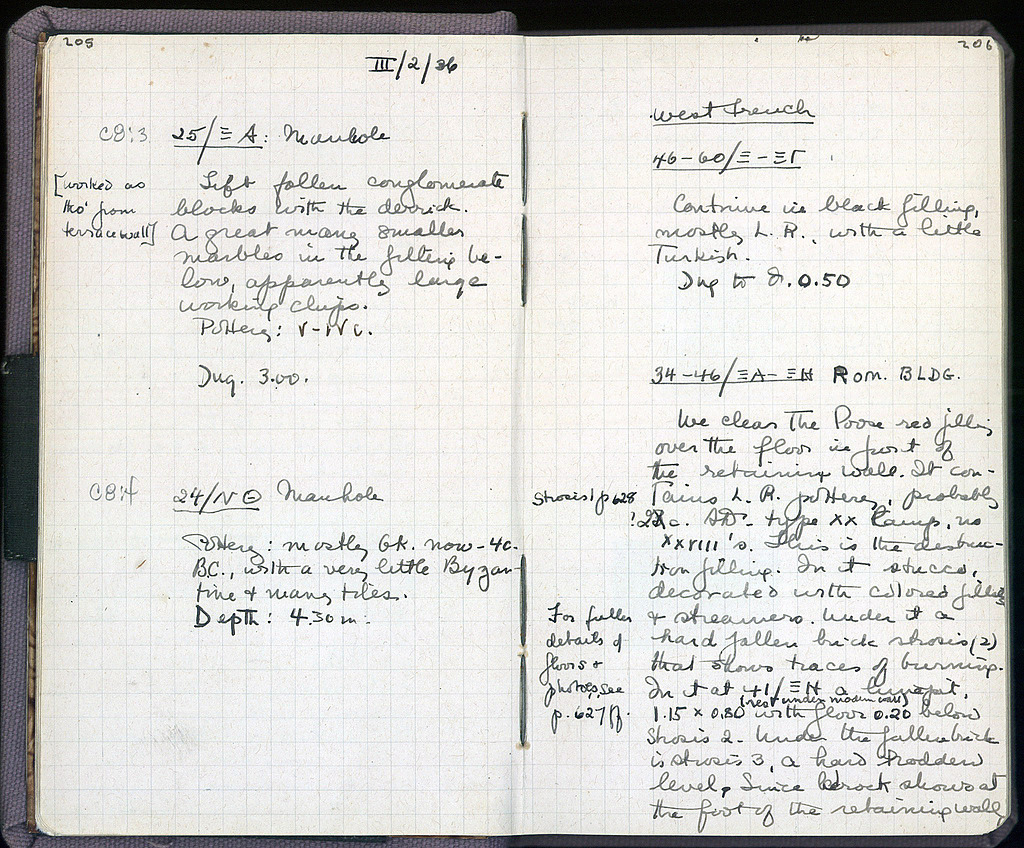 205
III/2/36
C8:3 25/ΞA: Manhole
[worked as
tho' from
terrace wall]
Lift fallen conglomerate
blocks with the derrick.
A great many smaller
marbles in the filling be-
low, apparently large
working chips.
Pottery: V-IV c.
Dug. 3.00.
C8:4 24/ΝΘ Manhole
Pottery: mostly Gk. now - 4c.
B.C., with a very little Byzan-
tine & many tiles.
Depth: 4.30 m.
206
West Trench
46-60/Ξ-ΞΓ
Continue in black filling,
mostly L. R., with a little
Turkish.
Dug to d. 0.50
34-46/ΞA-ΞH Rom. BLDG.
We clear the loose red filling
over the floor in front of
the retaining wall. It con-
Strosis 1 p 628
tains L. R. pottery, probably
c. AD - type XX lamp, no
XXVIII's. This is the destruc-
tion filling. In it stucco,
decorated with colored
For fuller
details of
floors &
photos, see
p. 627 ff.
& streamers. Under it a
hard fallen brick strosis (2)
that shows traces of burning.
In it at 41/ΞH a limepit,
(rest under modern wall)
1.15 x 0.80 with floor 0.20 below
strosis 2. Under the fallen brick
is strosis 3, a hard trodden
level. Since bedrock shows at
the foot of the retaining wall